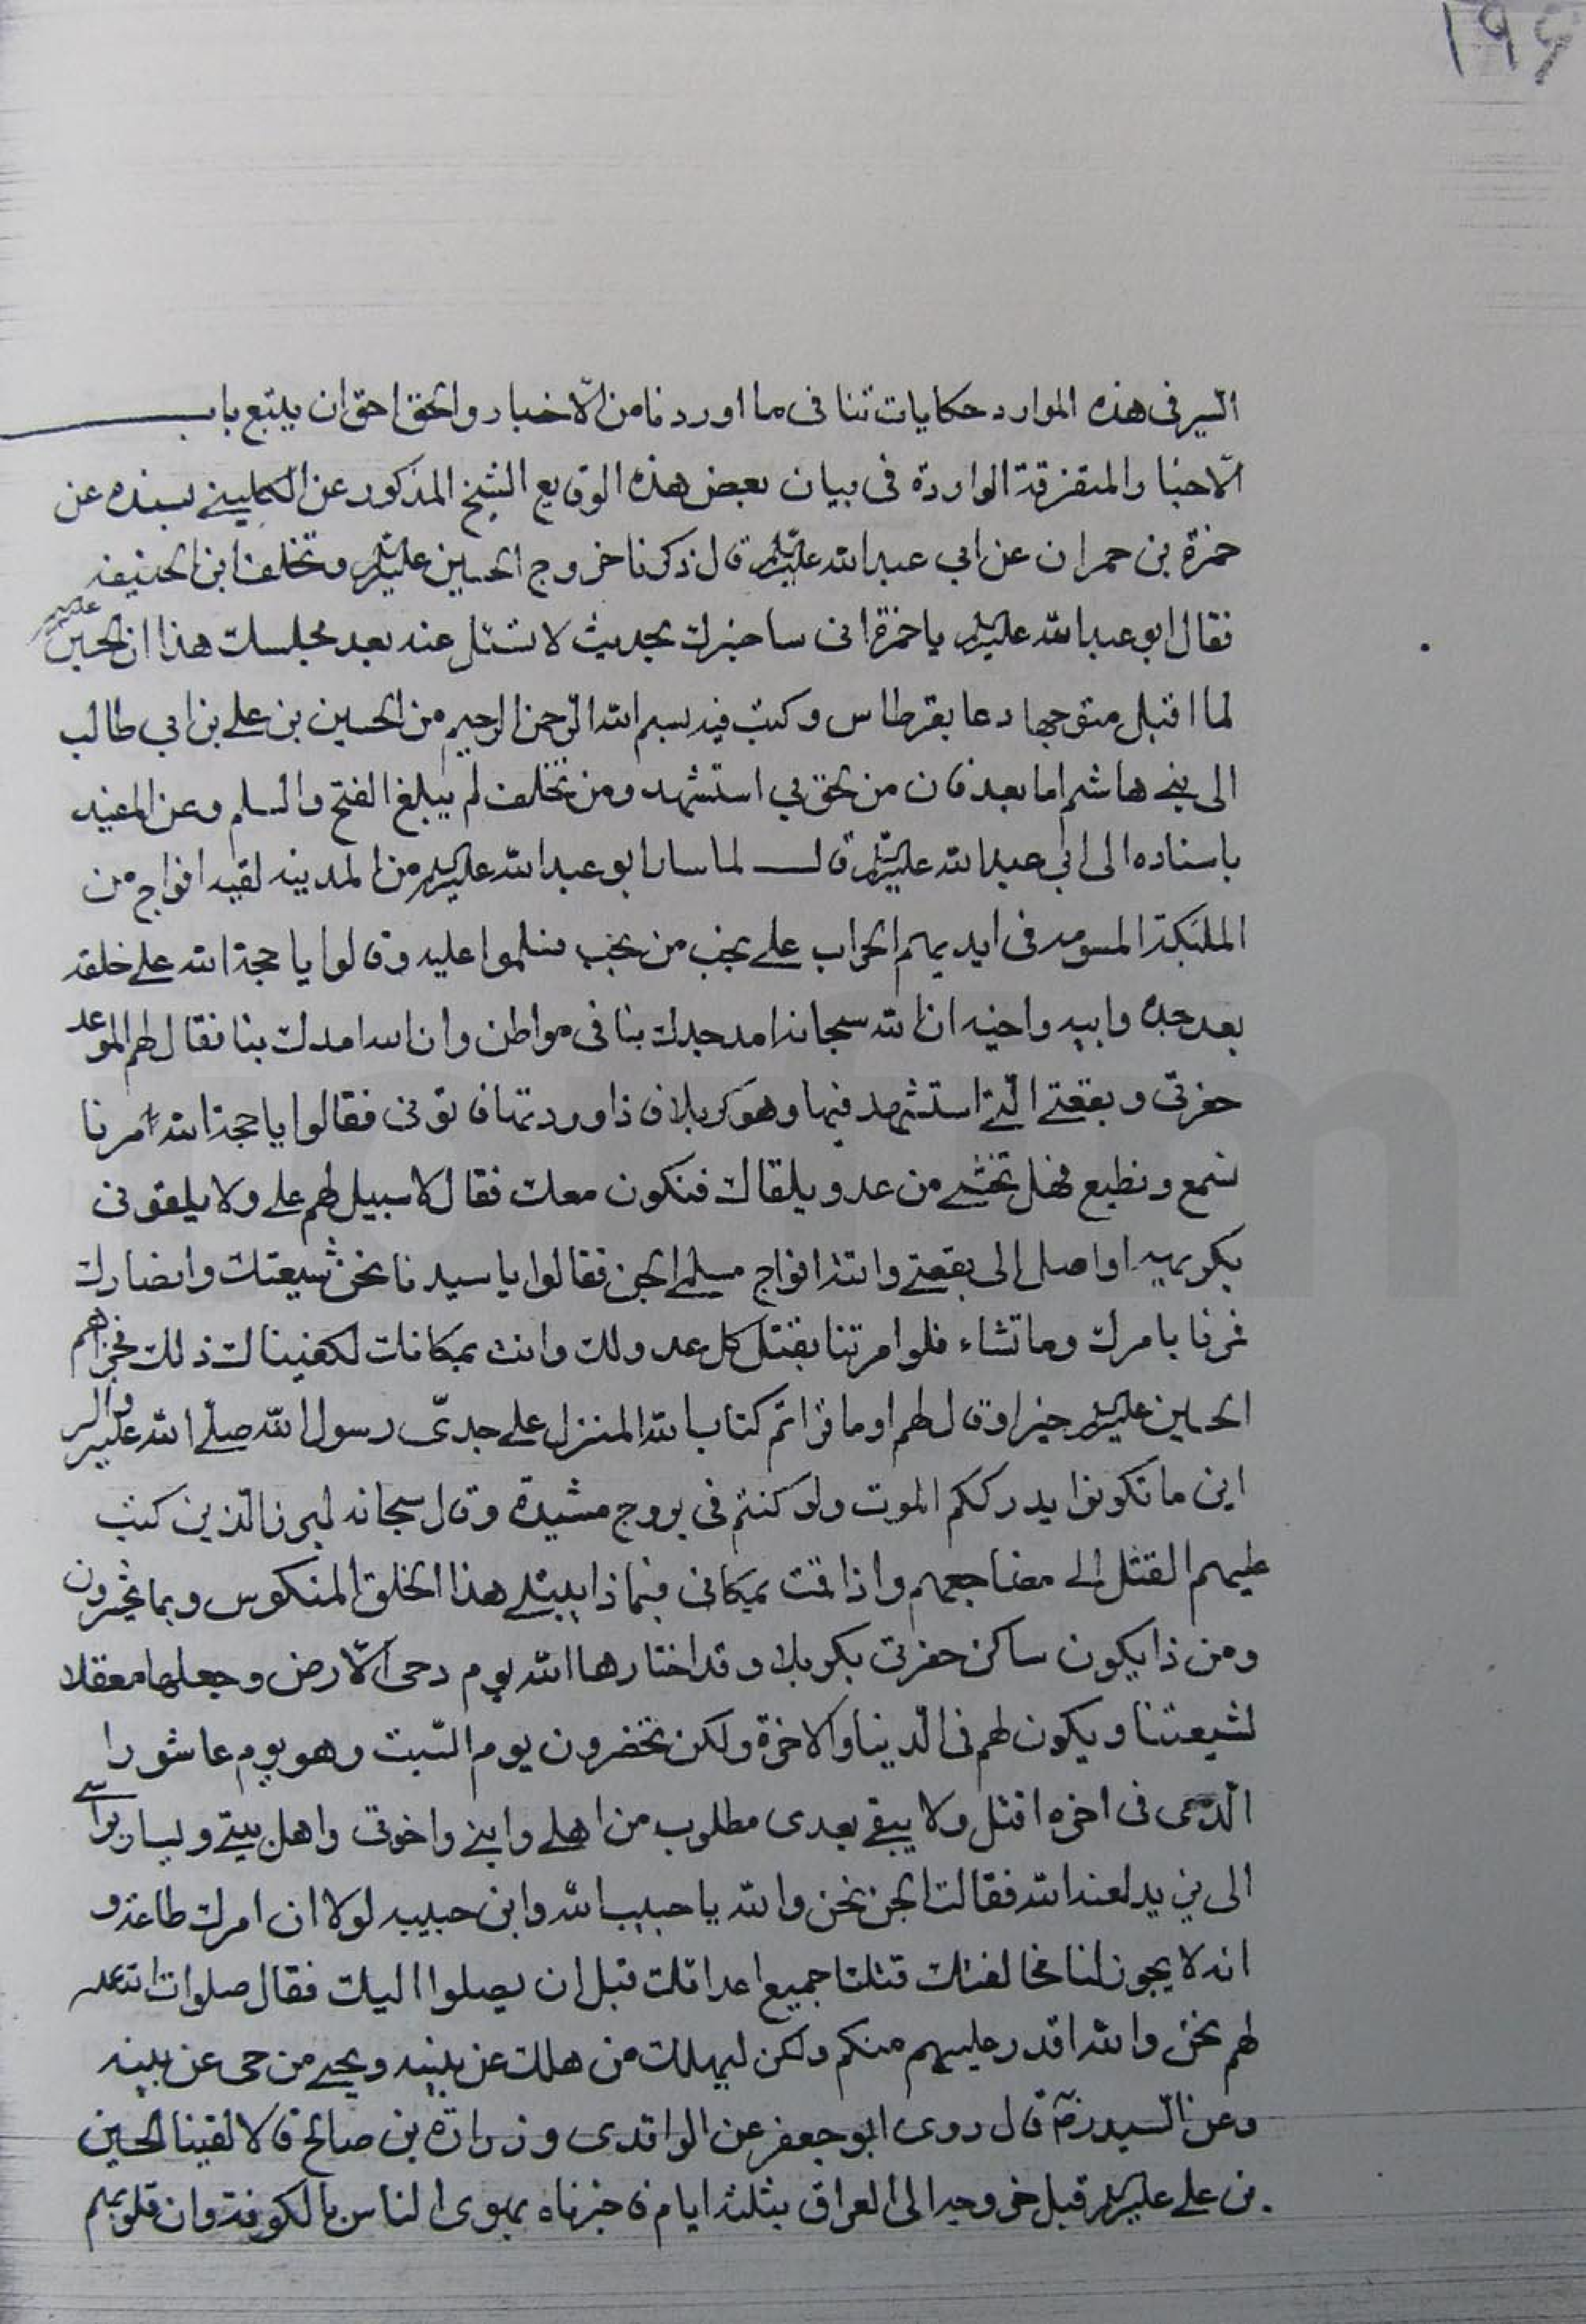 السير فى هذه الموارد حكايات تنا فى ما اوردنا من الاخبار والحق احق ان يتبع باب
الاخبار المتفرقة الواردة فى بيان بعض هذه الوقايع الشيخ المذكور عن الكلينى بسنده عن
حمزة بن حمران عن ابي عبد الله عليه السلم قال ذكرنا خروج الحسين عليه السلم وتخلف ابن الحنيفه
فقال ابو عبد الله عليه السلم يا حمزة انى ساخبرك بحديث لا تسئل عنه بعد مجلسك هذا ان الحسين عليه السلم
لما اقبل متوجها دعا بقرطاس وكتب فيه بسم الله الرحمن الرحيم من الحسين بن على بن ابي طالب
الى بنى هاشم اما بعد فان من لحق بي استشهد ومن تخلف لم يبلغ الفتح والسلم وعن المفيد
باسناده الى ابي عبد الله عليه السلم قال لما سار ابو عبد الله عليه السلم من المدينه لقيه افواج من
الملئكة المسومه فى ايديهم الحراب على نجب من نجب فسلموا عليه وقالوا يا حجة الله على خلقه
بعد جده وابيه واخيه ان الله سبحانه امد جدك بنا فى مواطن وان الله امدك بنا فقال لهم الموعد
حفرتى وبقعتى التى استشهد فيها وهو كربلا فاذا وردتها فاتونى فقالوا يا حجة الله امرنا
نسمع ونطيع فهل تخشى من عدو يلقاك فنكون معك فقال لا سبيل لهم على ولا يلقونى
بكريهه او اصل الى بقعتى واتته افواج مسلمى الجن فقالوا يا سيدنا نحن شيعتك وانصارك
فمرنا بامرك وما تشاء فلو امرتنا بقتل كل عدو لك وانت بمكانك لكفيناك ذلك فجزاهم
الحسين عليه السلم خيرا وقال لهم اوما قراتم كتاب الله المنزل على جدى رسول الله صلى الله عليه واله
اين ما تكونوا يدرككم الموت ولو كنتم فى بروج مشيدة وقال سبحانه لبرز الذين كتب
عليهم القتل الى مضاجعهم واذا قمت بمكانى فبماذا يبتلى هذا الخلق المنكوس وبما يختبرون
ومن ذا يكون ساكن حفرتى بكربلا وقد اختارها الله يوم دحى الارض وجعلها معقلا
لشيعتنا ويكون لهم فى الدنيا والاخرة ولكن تحضرون يوم السبت وهو يوم عاشورا
الذى فى اخره اقتل ولا يبقى بعدى مطلوب من اهلى وابنى واخوتى واهل بيتى ويسار براسى
الى يزيد لعنه الله فقالت الجن نحن والله يا حبيب الله وابن حبيبه لولا ان امرك طاعة و
انه لا يجوز لنا مخالفتك قتلنا جميع اعدائك قبل ان يصلوا اليك فقال صلوات الله عليه
لهم نحن والله اقدر عليهم منكم ولكن ليهلك من هلك عن بينه ويحيى من حى عن بينه
وعن السيد ره قال روى ابو جعفر عن الواقدى وزرارة بن صالح قالا لقينا الحسين
بن على عليه السلم قبل خروجه الى العراق بثلثة ايام فاخبرناه بهوى الناس بالكوفة وان قلوبهم